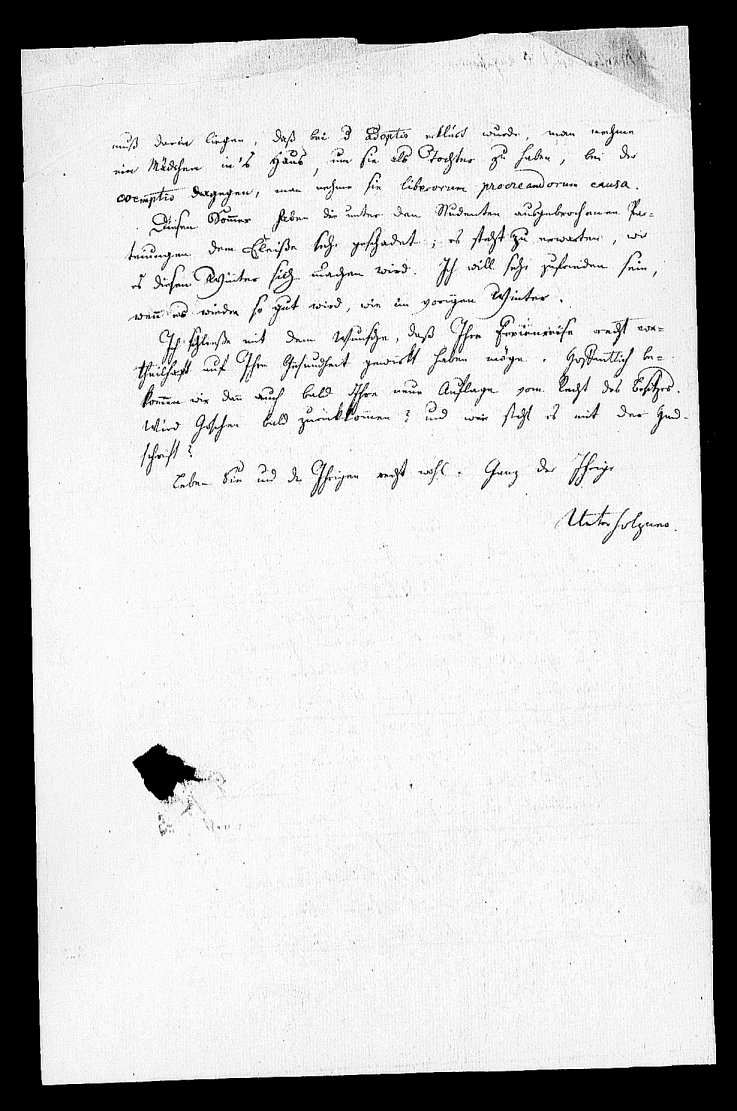 muß darin liegen, daß bei d adoptio erklärt wurde, man nehme
ein Mädchen in's Haus, um sie als Tochter zu haben, bei der
coemptio dagegen, man nehme sie liberorum procreandorum causa.
Diesen Sommer haben die unter den Studenten ausgebrochenen Par-
teiungen dem Fleiße sehr geschadet; es steht zu erwarten, wie
es diesen Winter sich machen wird. Ich will sehr zufrieden sein,
wenn es wieder so gut wird, wie im vorigen Winter.
Ich schließe mit dem Wunsche, daß Ihre Ferienreise recht vor-
theilhaft auf Ihre Gesundheit gewirkt haben möge. Hoffentlich be-
kommen wir dann auch bald Ihre neue Auflage vom Recht des Besitzes.
Wird Göschen bald zurückkommen? und wie steht es mit der Hand-
schrift?
Leben Sie und die Ihrigen recht wohl. Ganz der Ihrige
Unterholzner.